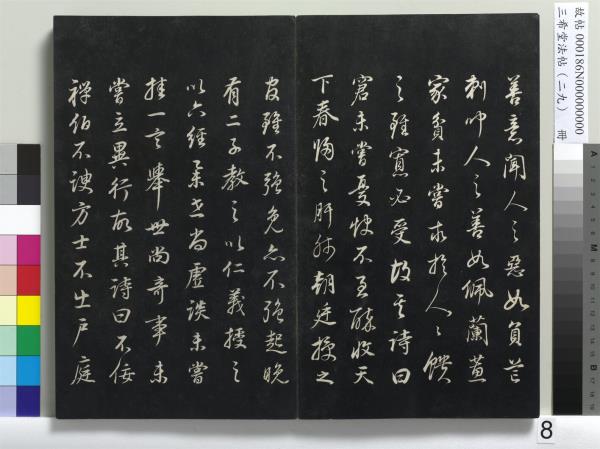 善意聞人之惡如負芒
刺聞人之善如佩蘭蕙
家貧未嘗求於人〻饋
之雖寡必受故其詩曰
窘未嘗憂飲不至醉收天
下春歸之肝肺朝廷授之
官雖不強免亦不強起晚
有二子教之以仁義授之
以六經舉世尚虛談未嘗
挂一言舉世尚奇事未
嘗立異行故其詩曰不佞
禪伯不諛方士不出戶庭
故帖 000186N000000000
三希堂法帖(二九) 冊
8